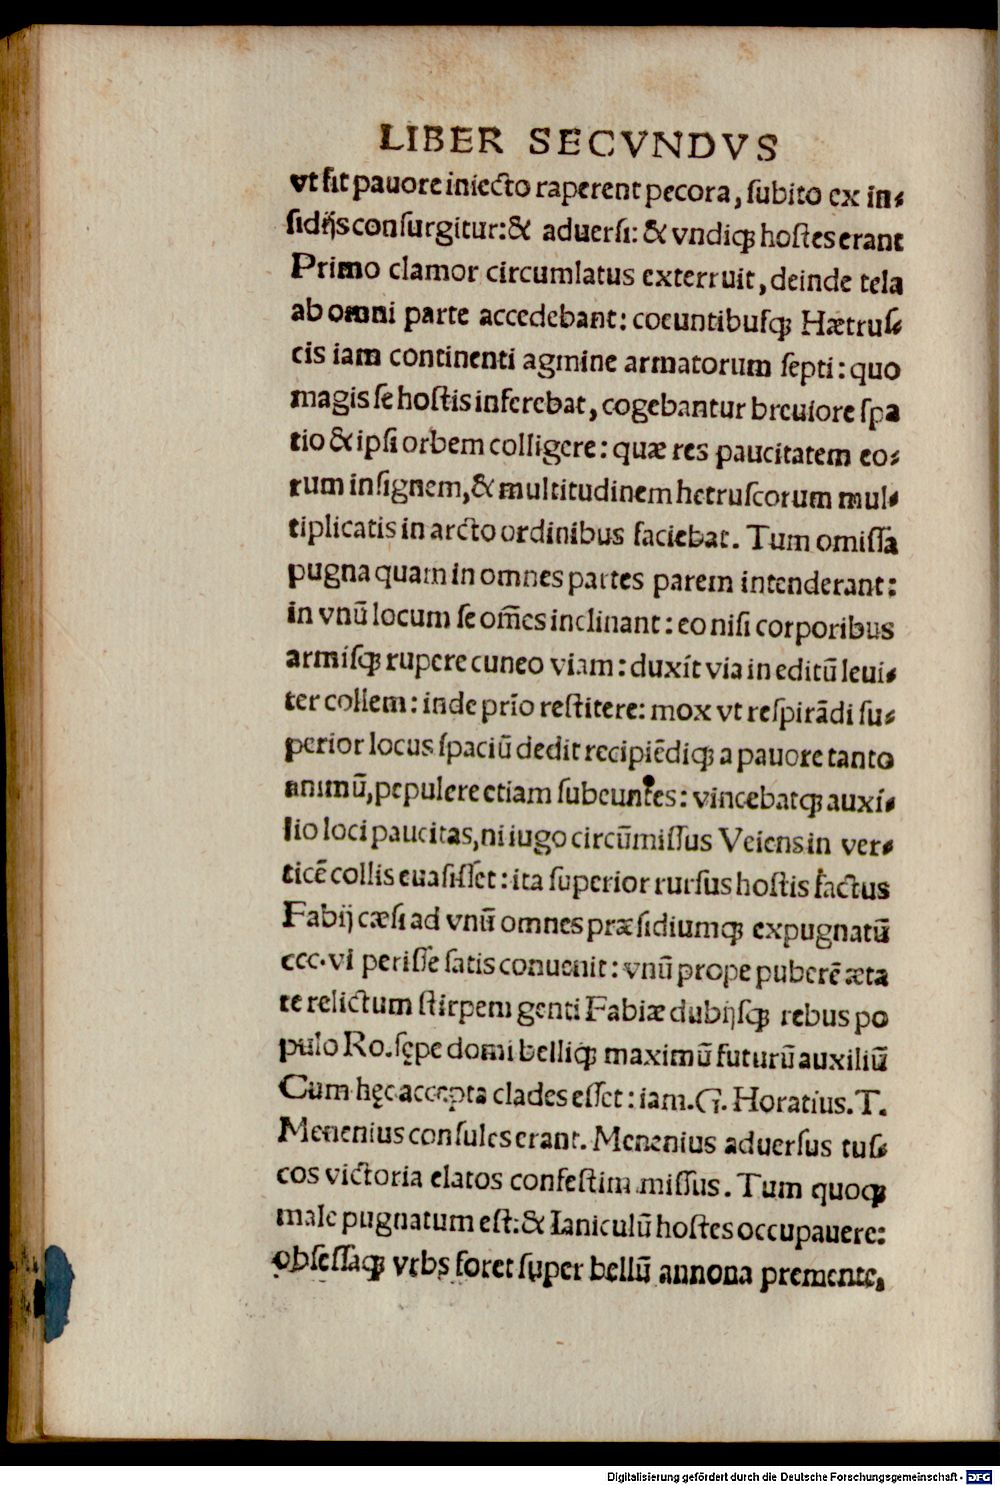 LIBER SECVNDVS
vt fit pauore iniecto raperent pecora, ſubito ex in⸗
ſidijs conſurgitur:& aduerſi: & vndiqꝫ hoſtes erant
Primo clamor circumlatus exterruit, deinde tela
ab omni parte accedebant: coeuntibuſqꝫ Hætruſ⸗
cis iam continenti agmine armatorum ſepti: quo
magis ſe hoſtis inferebat, cogebantur breuiore ſpa
tio & ipſi orbem colligere: quæ res paucitatem eo⸗
rum inſignem, & multitudinem hetruſcorum mul⸗
tiplicatis in arcto ordinibus faciebat. Tum omiſſa
pugna quam in omnes partes parem intenderant:
in vnū locum ſe om̄es inclinant: eo niſi corporibus
armiſqꝫ rupere cuneo viam: duxit via in editū leui⸗
ter collem: inde prīo reſtitere: mox vt reſpirādi ſu⸗
perior locus ſpaciū dedit recipiēdiqꝫ a pauore tanto
animū, pepulere etiam ſubeuntes: vincebatqꝫ auxi⸗
lio loci paucitas, ni iugo circūmiſſus Veiens in ver⸗
ticē collis euaſiſſet: ita ſuperior rurſus hoſtis factus
Fabij cæſi ad vnū omnes præſidiumqꝫ expugnatū
ccc.vi periſſe ſatis conuenit: vnū prope puberē æta
te relictum ſtirpem genti Fabiæ dubijſqꝫ rebus po
pulo Ro. ſępe domi belliqꝫ maximū futurū auxiliū
Cum hęc accepta clades eſſet: iam. G. Horatius. T.
Menenius conſules erant. Menenius aduerſus tuſ⸗
cos victoria elatos confeſtim miſſus. Tum quoqꝫ
male pugnatum eſt: & Ianiculū hoſtes occupauere:
obſeſſaqꝫ vrbs foret ſuper bellū annona premente,
Digitalisierung gefördert durch die Deutsche Forschungsgemeinschaft - DFG